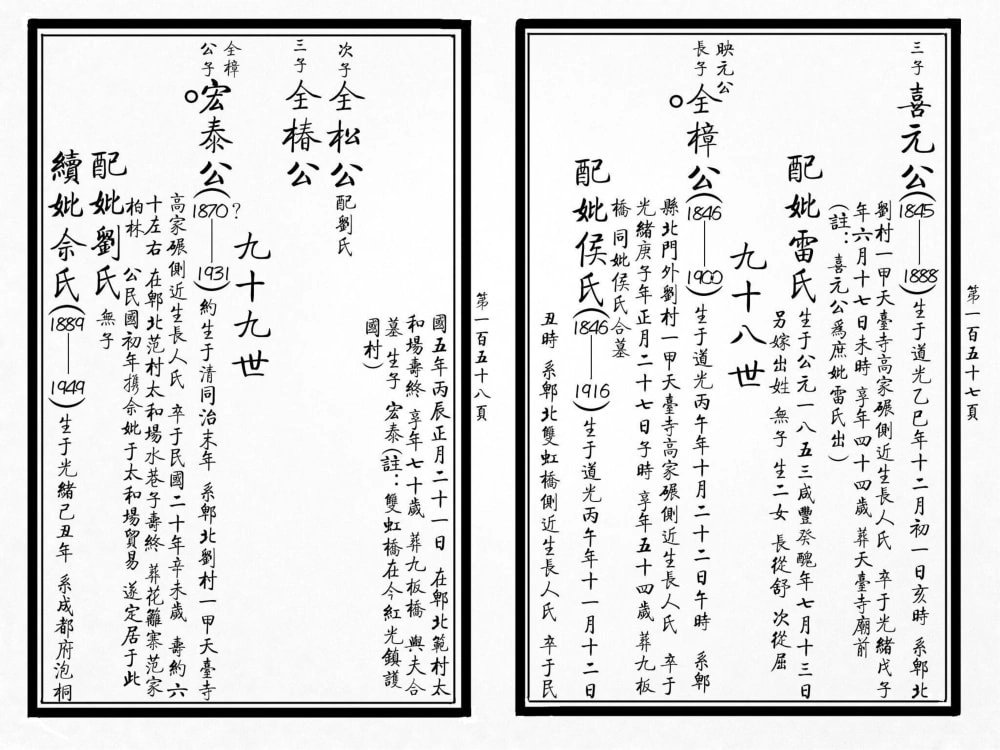 三子
喜元公(1845——1888)生于道光乙巳年十二月初一日亥時 系郫北
劉村一甲天臺寺高家碾側近生長人氏 卒于光緒戊子
年六月十七日未時 享年四十四歲 葬天臺寺廟前
(註：喜元公爲庶妣雷氏出)
配妣雷氏 生于公元一八五三咸豐癸醜年七月十三日
另嫁出姓 無子 生二女 長從舒 次從屈
九十八世
映元公
長子
全樟公(1846——1900)生于道光丙午年十月二十二日午時 系郫
縣北門外劉村一甲天臺寺高家碾側近生長人氏 卒于
光緒庚子年正月二十七日子時 享年五十四歲 葬九板
橋 同妣侯氏合墓
配妣侯氏(1846——1916)生于道光丙午年十一月十二日
丑時 系郫北雙虹橋側近生長人氏 卒于民
第一百五十七頁
國五年丙辰正月二十一日 在郫北範村太
和場壽終 享年七十歲 葬九板橋 與夫合
墓 生子 宏泰(註：雙虹橋在今紅光鎮護
國村)
次子
全松公配劉氏
三子
全椿公
九十九世
全樟
公子
宏泰公(1870?——1931)約生于清同治末年 系郫北劉村一甲天臺寺
高家碾側近生長人氏 卒于民國二十年辛未歲 壽約六
十左右 在郫北范村太和場水巷子壽終 葬花籬寨范家
柏林 公民國初年攜佘妣于太和場貿易 遂定居于此
配妣劉氏 無子
續妣佘氏(1889——1949)生于光緒己丑年 系成都府泡桐
第一百五十八頁